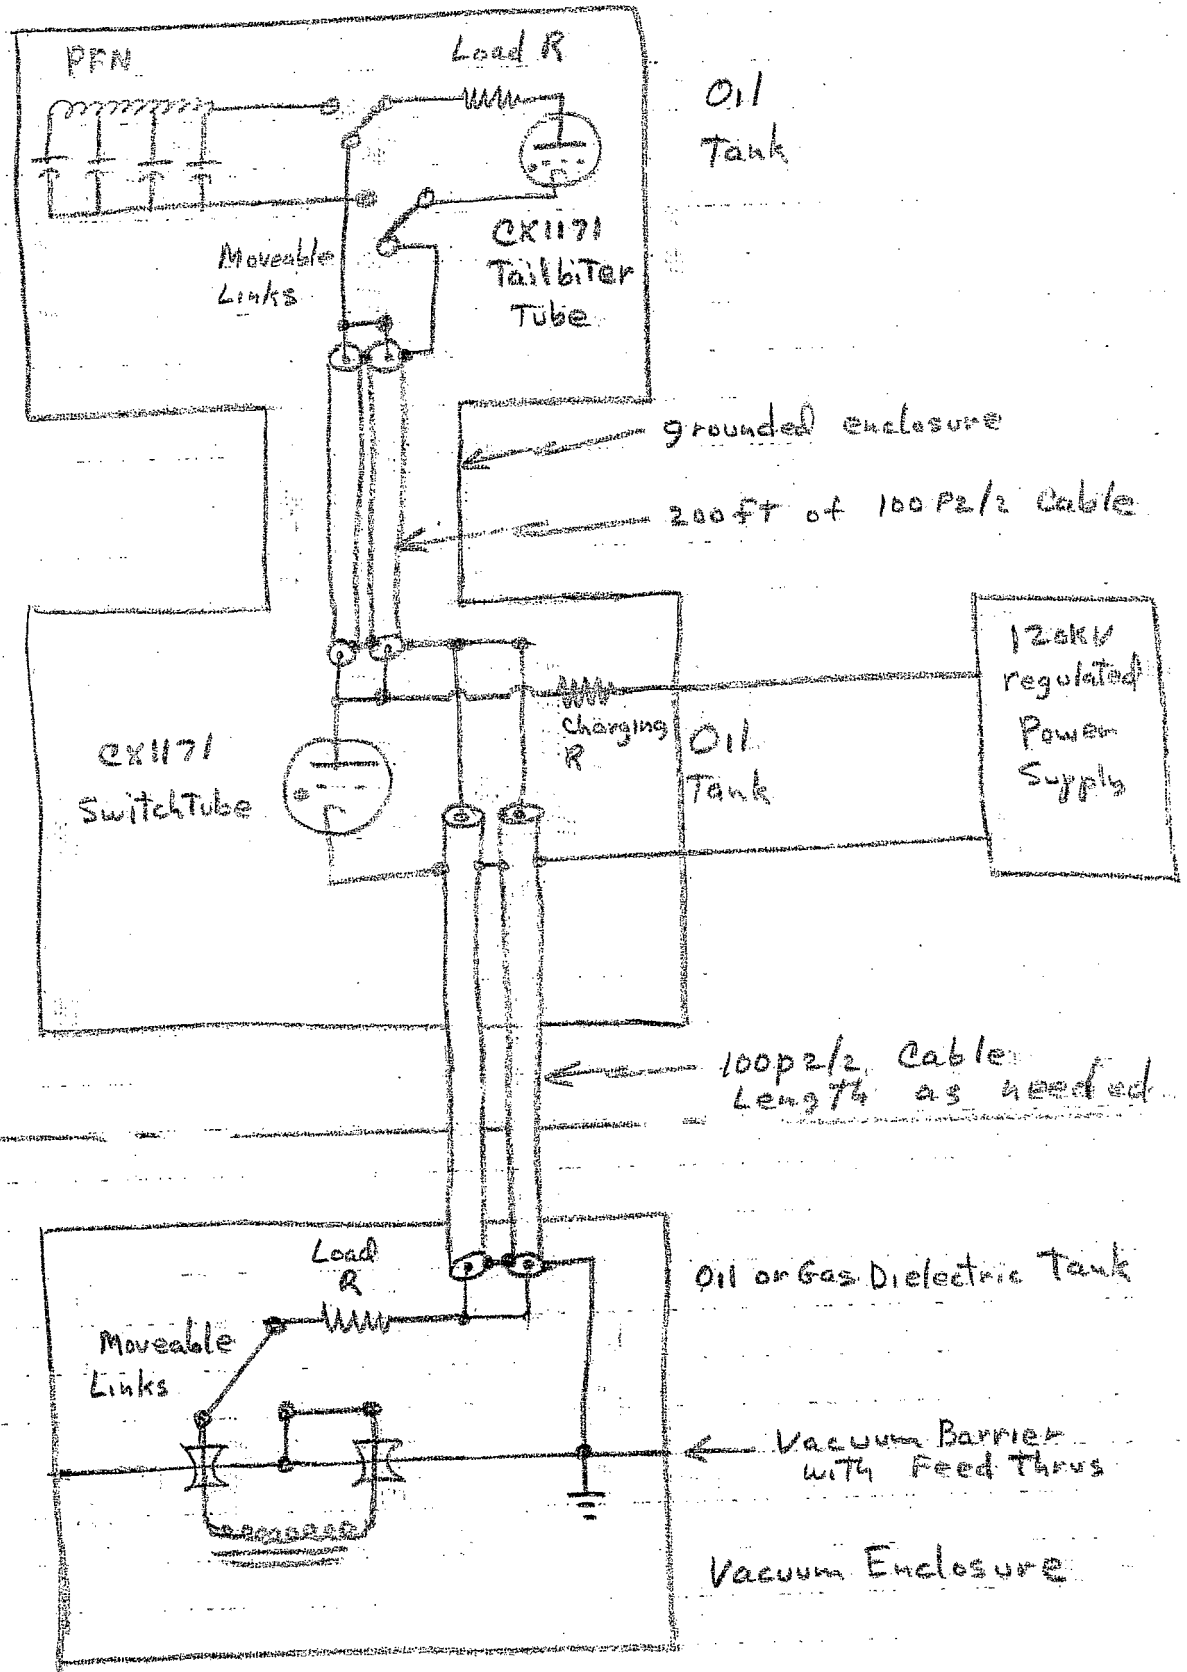 PFN
Load R
Oil
Tank
CX1171
Tailbiter
Tube
Moveable
Links
grounded enclosure
200ft of 100P2/2 Cable
120KV
regulated
Power
Supply
Charging
R
Oil
Tank
CX1171
SwitchTube
100p2/2 Cable
Length as needed
Load
R
Oil or Gas Dielectric Tank
Moveable
Links
Vacuum Barrier
with Feed Thrus
Vacuum Enclosure